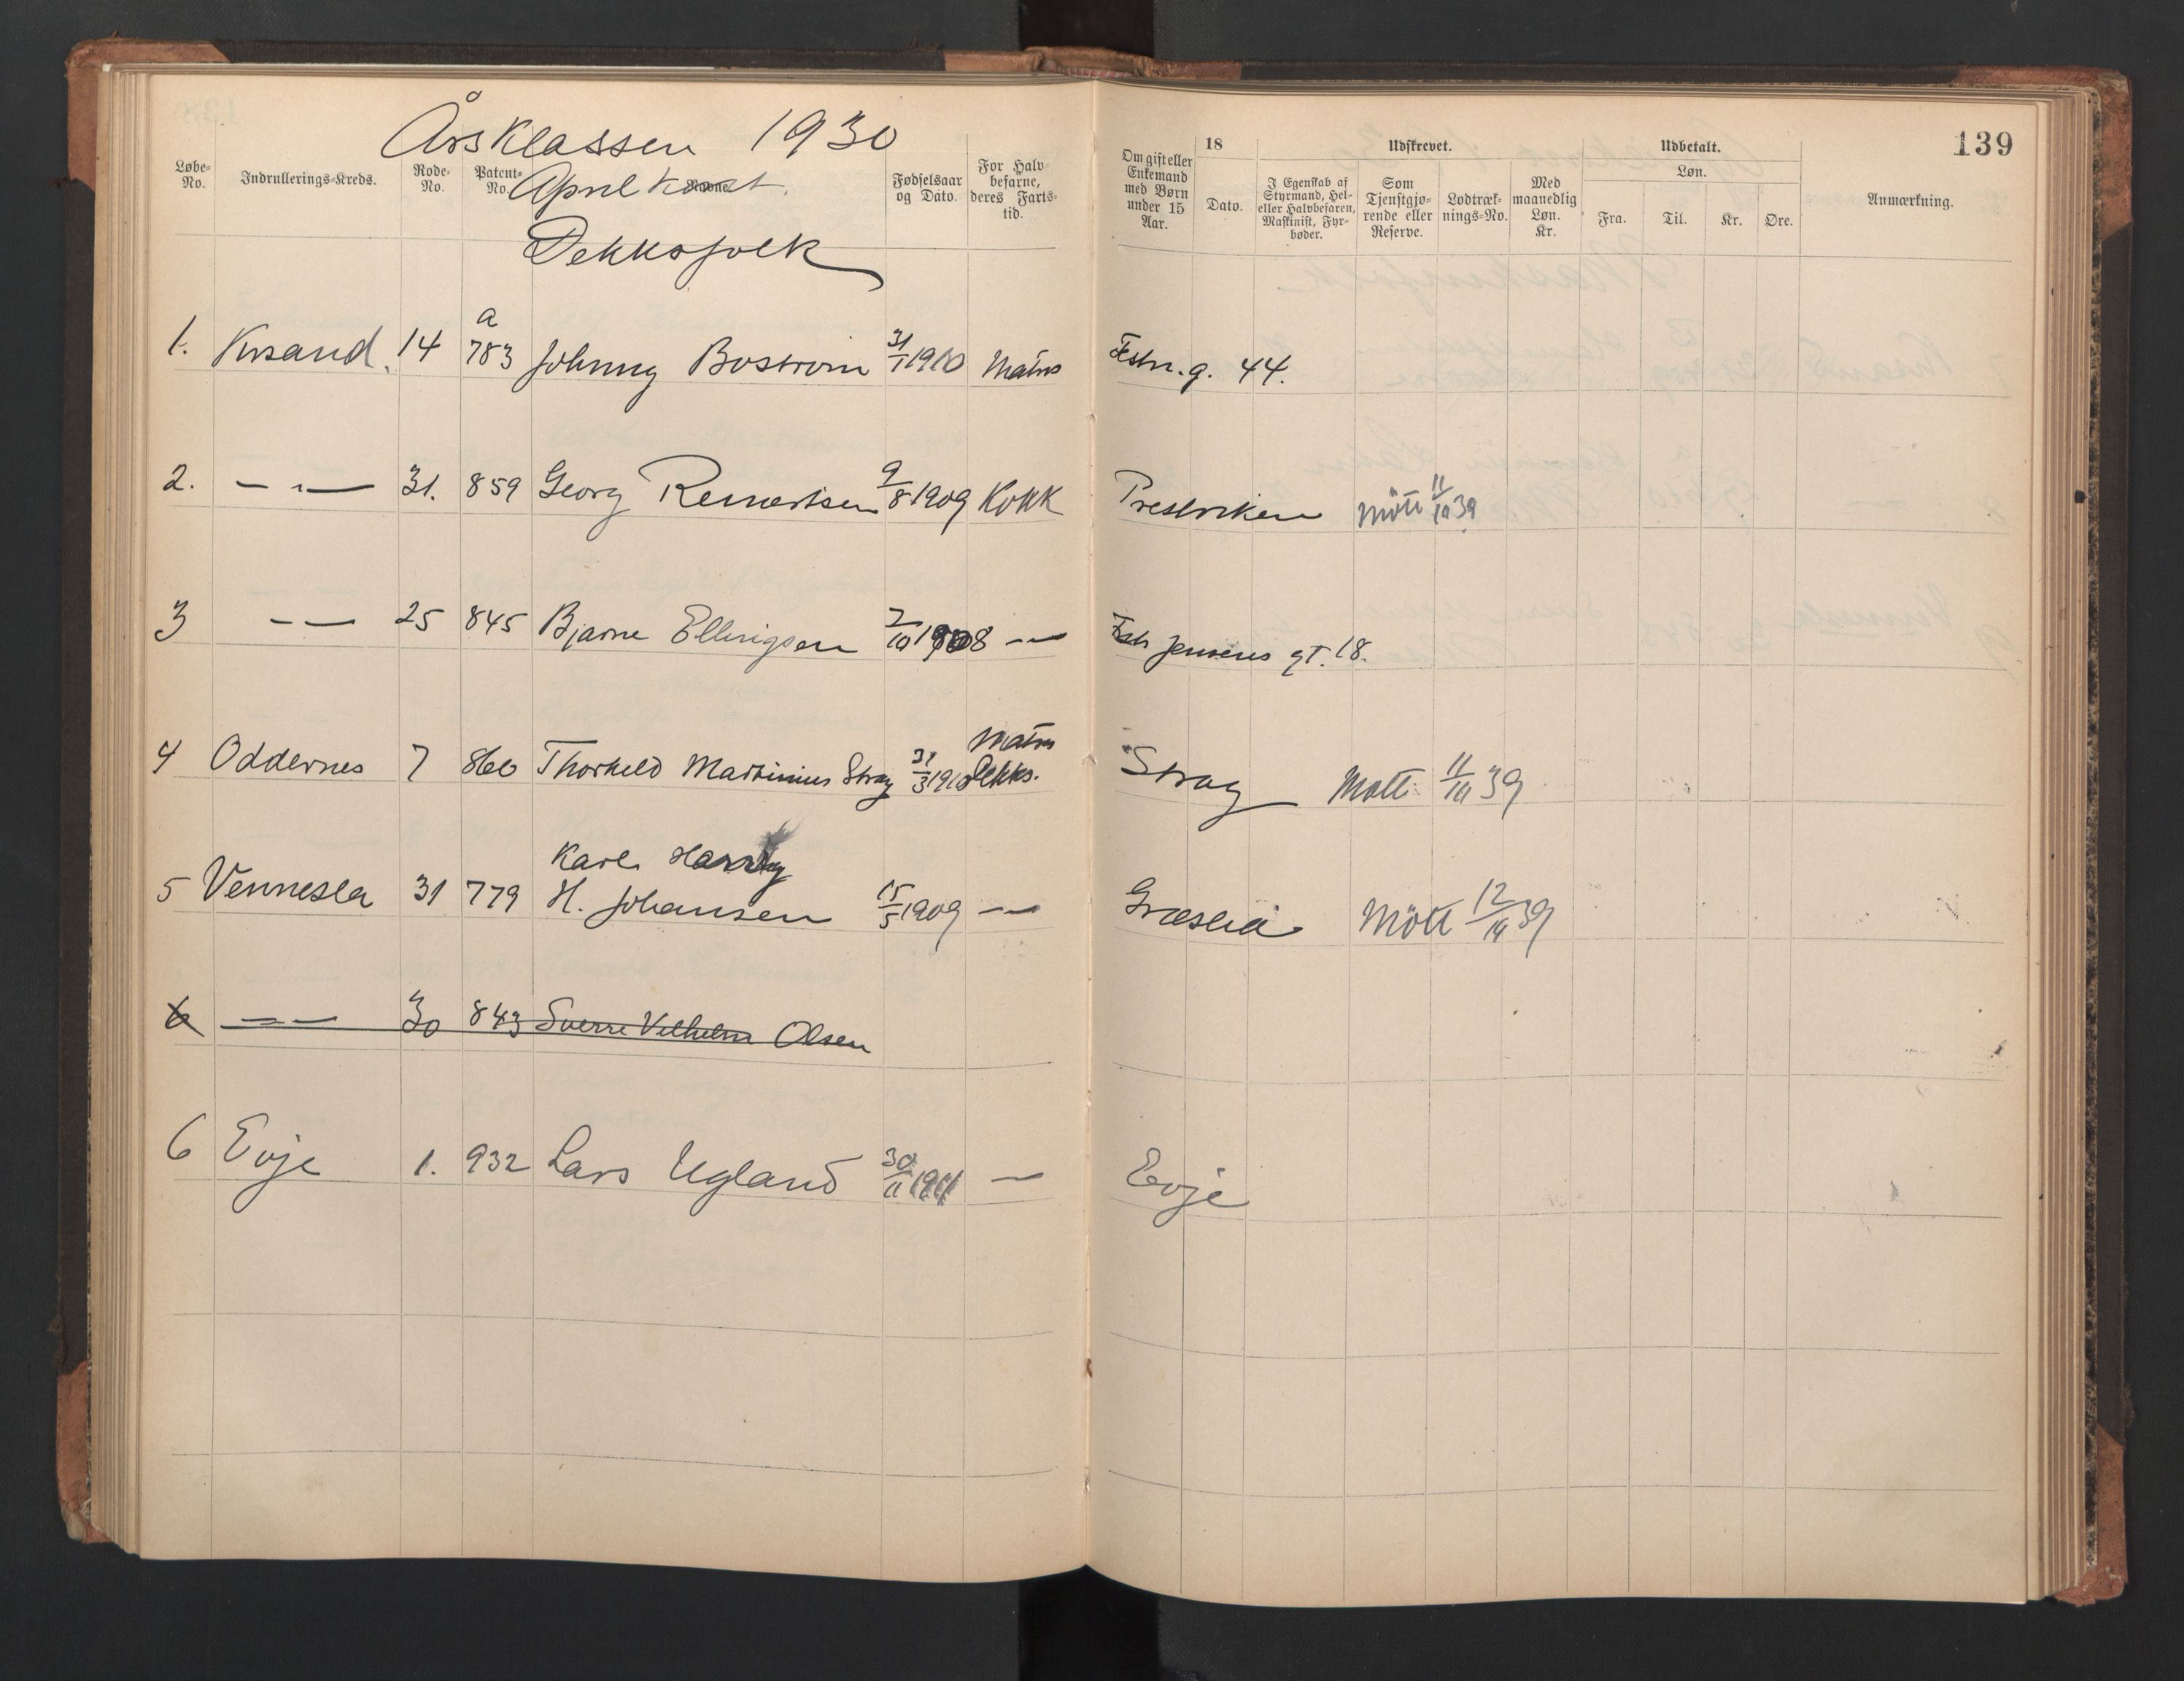 Årsklassen 1930
April kont.
Dekksfolk
Løbe-No.
Indrullerings-Kreds.
Rode-No.
Patent-No.
Navne.
Fødselsaar og Dato.
For Halvbefarne, deres Fartstid.
Om gift eller Enkemand med Børn under 15 Aar.
18
Dato.
Udskrevet.
I Egenskab af Styrmand, Hel- eller Halvbefaren, Maskinist, Fyrbøder.
Som Tjenstgjørende eller Reserve.
Lodtræknings-No.
Med maanedlig Løn. Kr.
Udbetalt.
Løn.
Fra.
Til.
Kr.
Øre.
Anmærkning.
139
1. Krsand. 14 a 783 Johnny Bostrøm 31/1 1910 Matros Festn.g. 44.
2. — " — 31. 859 Georg Reinertsen 9/8 1909 Kokk Prestviken Mött 11/10 39
3 — — 25 845 Bjarne Ellingsen 2/10 1908 — — Jensens gt. 18.
4 Oddernes 7 860 Thorkeld Martinius Stray 31/3 1910 Matros Dekks. Stray Mött 11/10 39
Karl Harry
5 Vennesla 31 779 H. Johansen 15/5 1909 — — Græslia Mött 12/10 39
6 — — 30 843 Sverre Vilhelm Olsen
6 Evje 1. 932 Lars Ugland 30/11 1911 — Evje